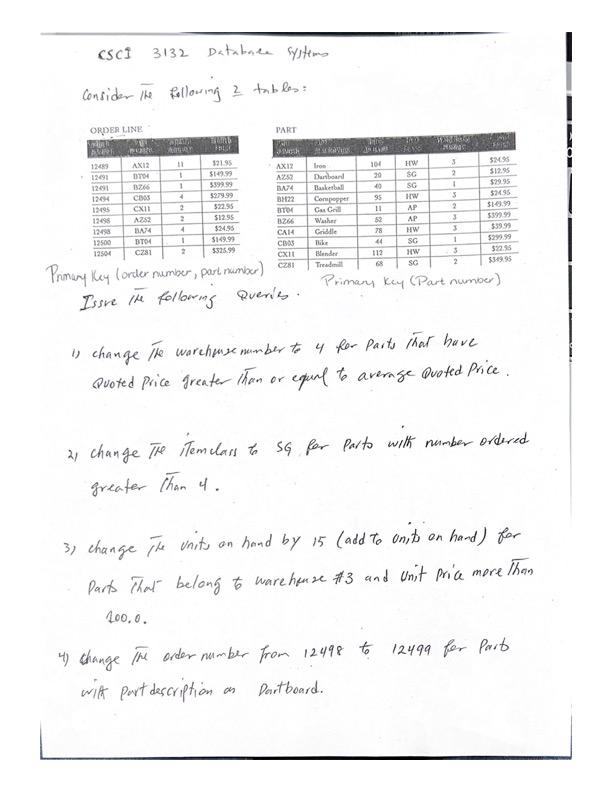 CSCI 3132 Database Systems
Consider the following 2 tables:
ORDER LINE
12489 AX12 11 $21.95
12491 BT04 1 $149.99
12491 BZ66 1 $399.99
12494 CB03 4 $279.99
12495 CX11 2 $22.95
12498 AZ52 2 $12.95
12498 BA74 4 $24.95
12500 BT04 1 $149.99
12504 CZ81 2 $325.99
Primary Key (order number, part number)
PART
AX12 Iron 104 HW 3 $24.95
AZ52 Dartboard 20 SG 2 $12.95
BA74 Basketball 40 SG 1 $29.95
BH22 Cornpopper 95 HW 3 $24.95
BT04 Gas Grill 11 AP 2 $149.99
BZ66 Washer 52 AP 3 $399.99
CA14 Griddle 78 HW 3 $39.99
CB03 Bike 44 SG 1 $299.99
CX11 Blender 112 HW 3 $22.95
CZ81 Treadmill 68 SG 2 $349.95
Primary Key (Part number)
Issue the following Queries.
1) change the warehouse number to 4 for parts that have
Quoted Price greater than or equal to average Quoted Price.
2) change the itemclass to SG for parts with number ordered
greater than 4.
3) change the units on hand by 15 (add to units on hand) for
parts that belong to warehouse #3 and unit price more than
200.0.
4) change the order number from 12498 to 12499 for Parts
with part description as Dartboard.